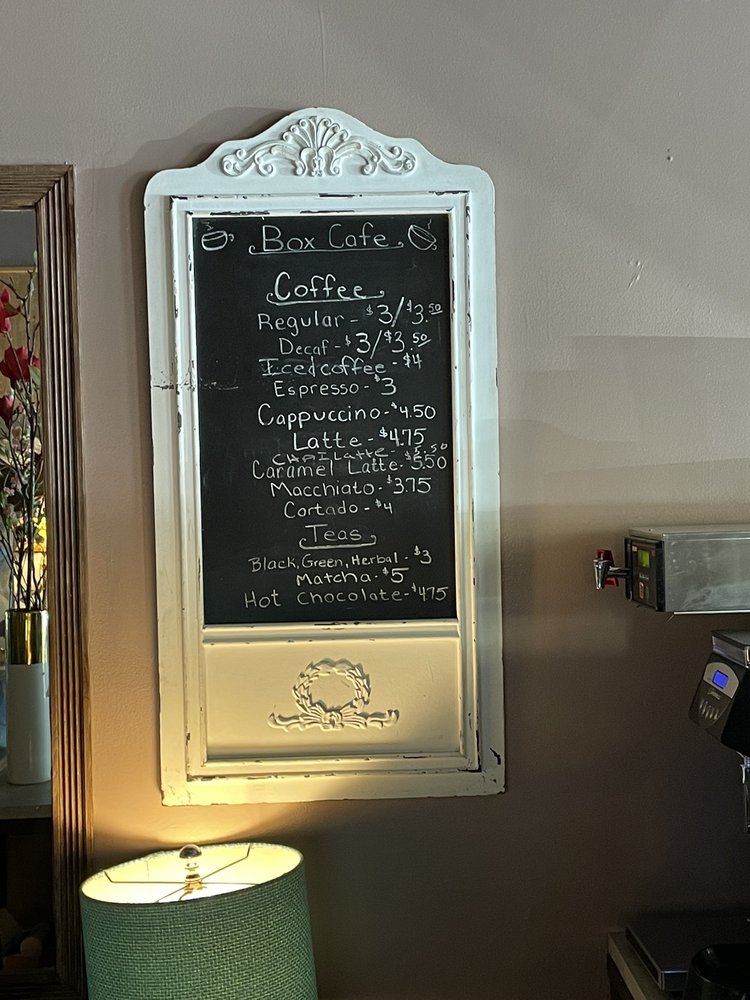 Box Cafe
Coffee
Regular - $3/$3.50
Decaf - $3/$3.50
Iced coffee - $4
Espresso - $3
Cappuccino - $4.50
Latte - $4.75
CHAI Latte - $5.50
Caramel Latte - $5.50
Macchiato - $3.75
Cortado - $4
Teas
Black, Green, Herbal - $3
Matcha - $5
Hot Chocolate - $4.75